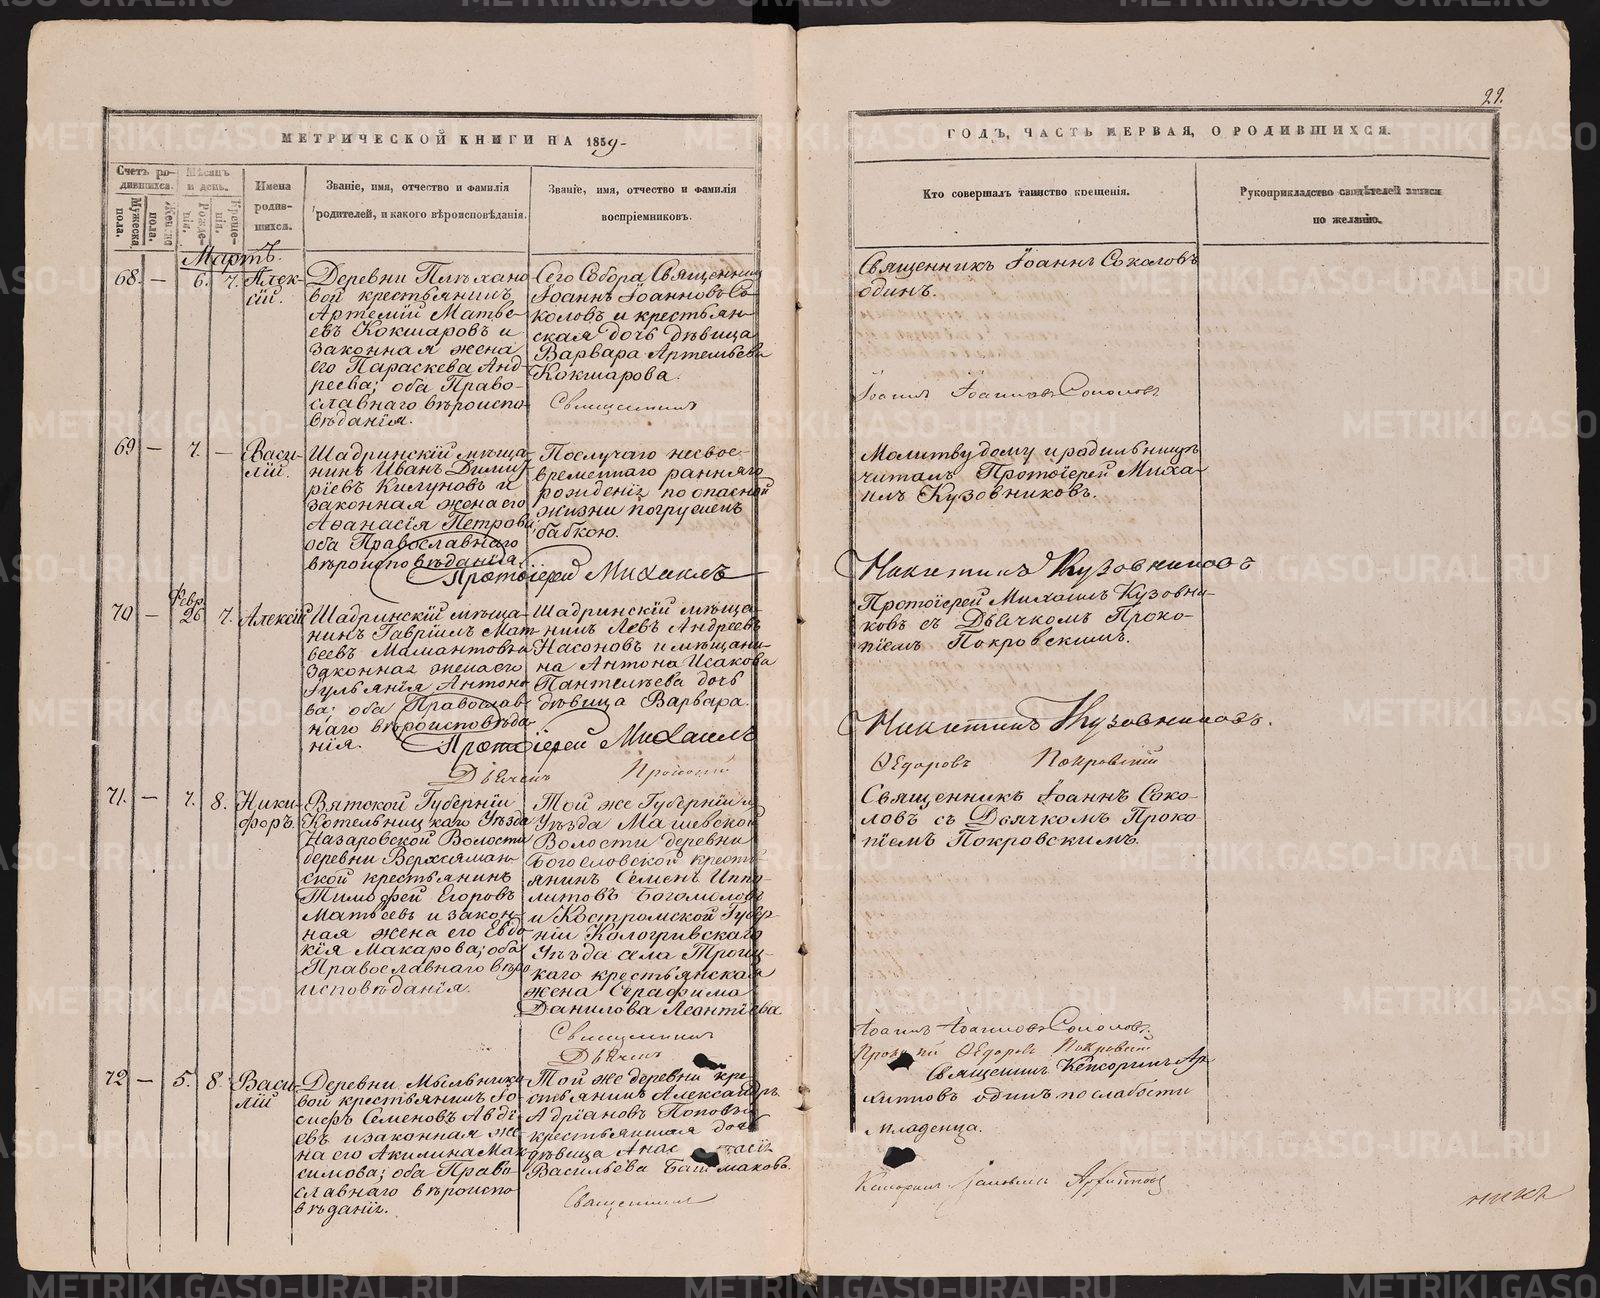 22.
МЕТРИЧЕСКОЙ КНИГИ НА 1859
ГОДЪ, ЧАСТЬ ПЕРВАЯ, О РОДИВШИХСЯ.
Счетъ родившихся.
Мужеска пола.
Женска пола.
Мѣсяцъ и день.
Рожденія.
Крещенія.
Имена родившихся.
Званіе, имя, отчество и фамилія
родителей, и какого вѣроисповѣданія.
Званіе, имя, отчество и фамилія
воспріемниковъ.
Кто совершалъ таинство крещенія.
Рукоприкладство свидѣтелей записи
по желанію.
Мартъ.
68. — 6. 7. Алек-
сій.
Деревни
вой крестьянинъ
Артемій Матве-
евъ Кокшаровъ и
законная жена
его Параскева Анд-
реева; оба Право-
славнаго вѣроиспо-
вѣданія.
Сего Собора Священникъ
Іоаннъ Іоанновъ Со-
коловъ и крестьян-
ская дочь дѣвица
Варвара Артемьева
Кокшарова.
Священникъ
Священникъ Іоаннъ Соколовъ
одинъ.
Іоаннъ Іоанновъ Соколовъ
69 — 7. — Васи-
лій.
Шадринскій мѣща-
нинъ Иванъ Димит-
ріевъ Килуновъ и
законная жена его
Аѳанасія Петрова
оба Православнаго
вѣроисповѣданія.
По случаю несвое-
временнаго ранняго
рожденія по опасной
жизни погруженъ
бабкою.
Молитву дому и родильницѣ
читалъ Протоіерей Миха-
илъ Кузовниковъ.
Протоіерей Михаилъ
Никитинъ Кузовниковъ
70 — Февр. 26 7. Алексій
Шадринскій мѣща-
нинъ Гавріилъ Мат-
веевъ Мамантовъ и
законная жена его
Іульянія Антоно-
ва; оба Православ-
наго вѣроисповѣда-
нія.
Шадринскій мѣща-
нинъ Левъ Андреевъ
Насоновъ и мѣщани-
на Антона Исакова
Пантелѣева дочь
дѣвица Варвара.
Протоіерей Михаилъ Кузовни-
ковъ съ Дьячкомъ Проко-
піемъ Покровскимъ.
Протоіерей Михаилъ
Никитинъ Кузовниковъ.
Дьячекъ Прокопій
Ѳедоровъ Покровскій
71. — 7. 8. Ники-
форъ.
Вятской Губерніи
Котельницкаго Уѣзда
Назаровской Волости
деревни
ской крестьянинъ
Тимофей Егоровъ
Матвѣевъ и закон-
ная жена его Евдо-
кія Макарова; оба
Православнаго вѣро-
исповѣданія.
Той же Губерніи и
Уѣзда
Волости деревни
Богословской кресть-
янинъ Семенъ Иппо-
литовъ Богомоловъ
и Костромской Губер-
ніи Кологривскаго
Уѣзда села Троиц-
каго крестьянская
жена Серафима
Данилова Леонтіева.
Священникъ Іоаннъ Соко-
ловъ съ Дьячкомъ Проко-
піемъ Покровскимъ.
Священникъ
Іоаннъ Іоанновъ Соколовъ.
Дьячекъ
Прокопій Ѳедоровъ Покровскій
72 — 5. 8. Васи-
лій
Деревни Мыльнико-
вой крестьянинъ Іо-
сифъ Семеновъ Авді-
евъ и законная же-
на его Акилина Мак-
симова; оба Право-
славнаго вѣроиспо-
вѣданія.
Той же деревни кре-
стьянинъ Александръ
Адріановъ Поповъ и
крестьянская дочь
дѣвица
Васильева Башмакова.
Священникъ
Священникъ
одинъ по слабости
младенца.
METRIKI.GASO-URAL.RU